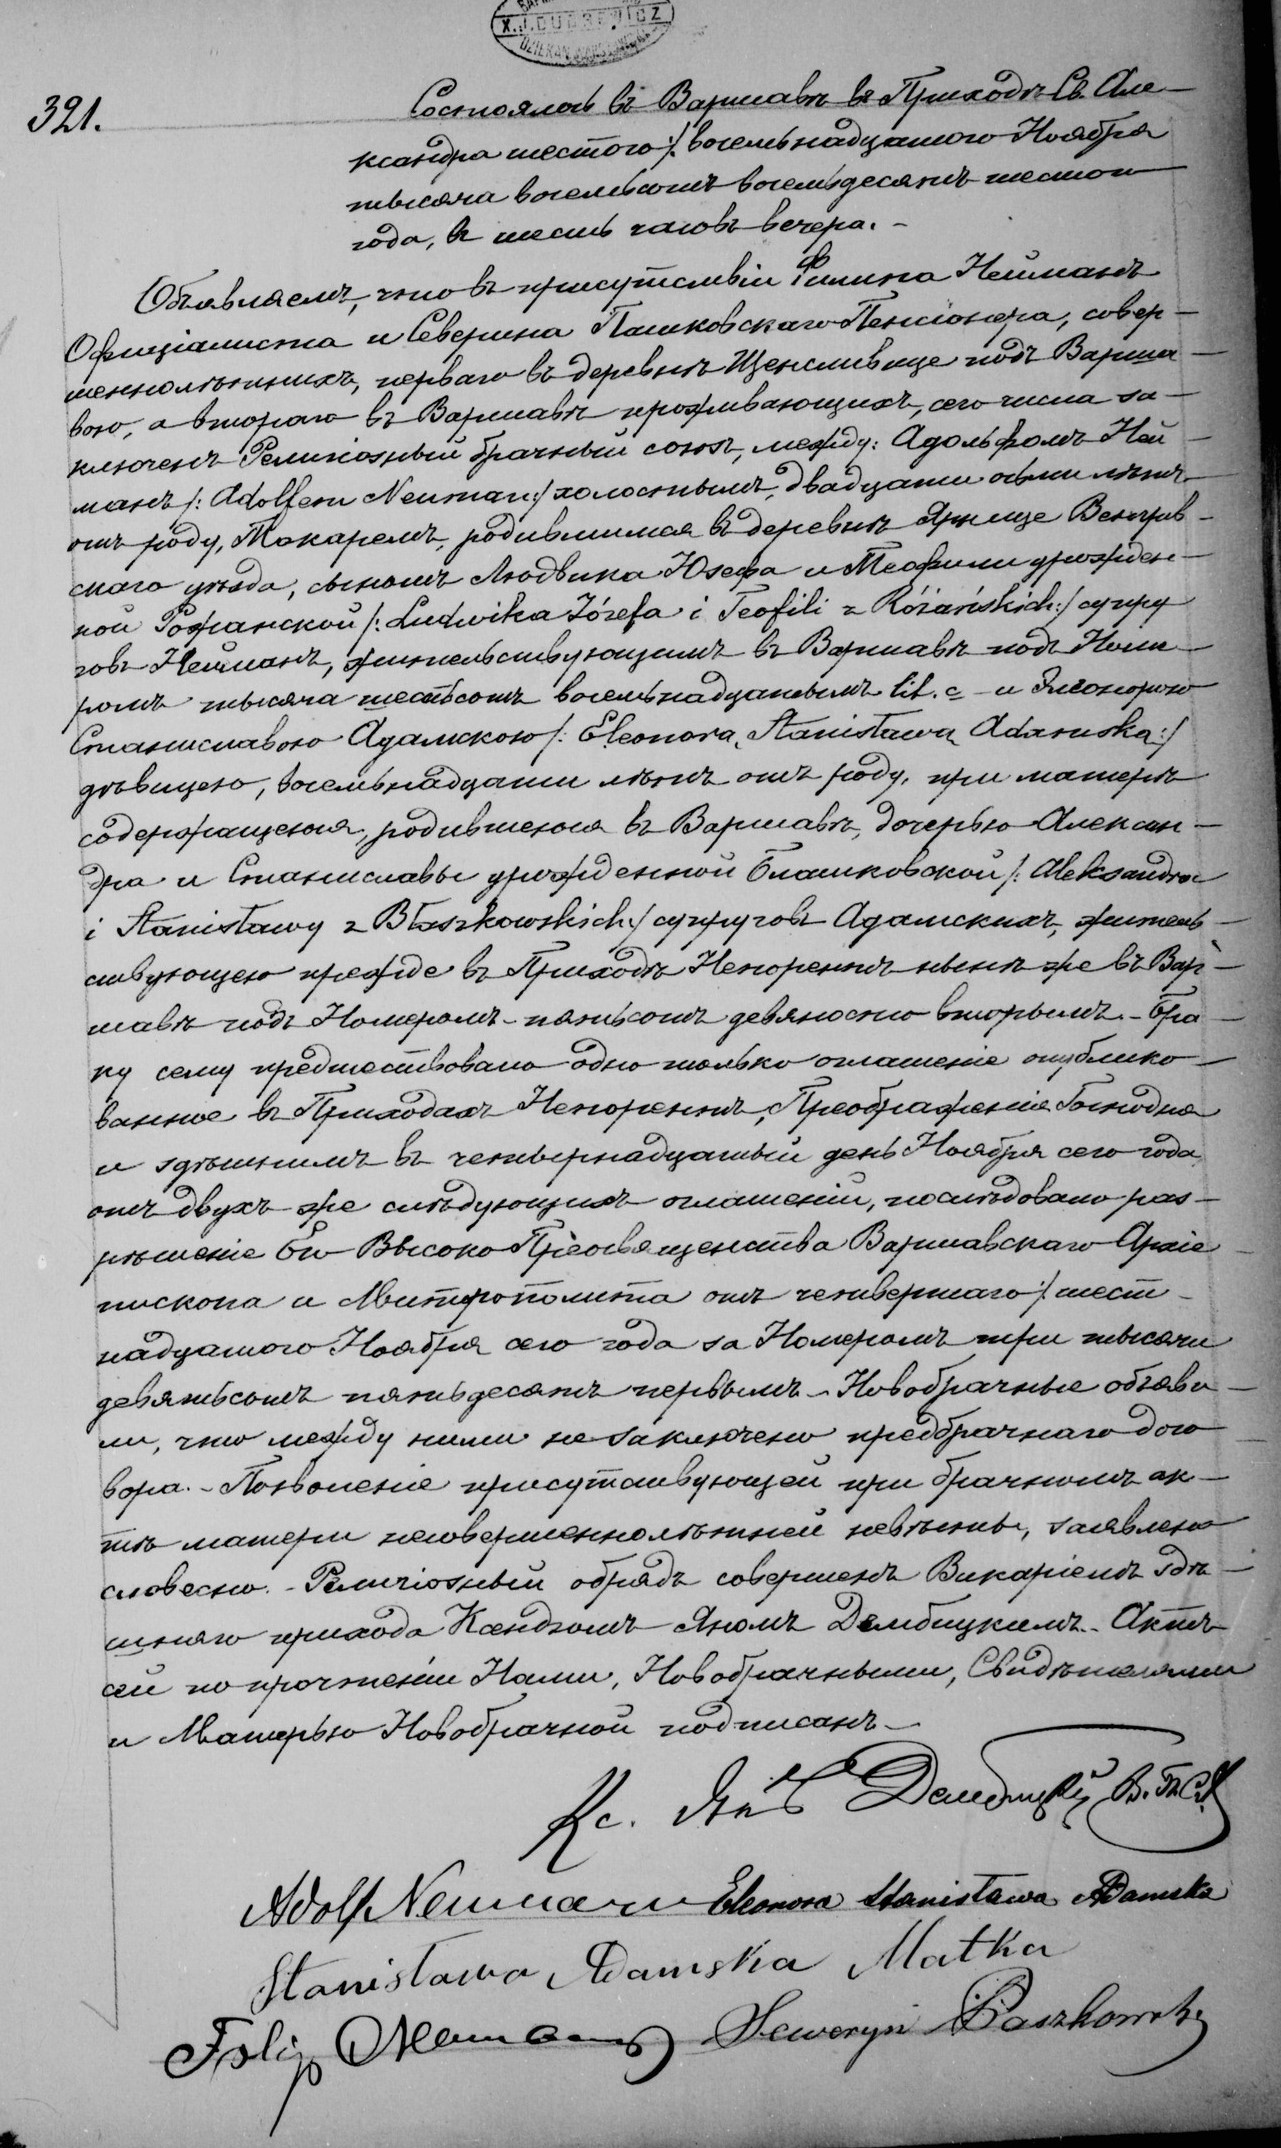 X. J. DUDREWICZ
DZIEKAN
321.
Состоялось въ Варшавѣ въ Приходѣ Св. Але-
ксандра шестого/: восемьнадцатого Ноября
тысяча восемьсотъ восемьдесятъ шестого
года, въ шесть часовъ вечера. -
Объявляемъ, что въ присутствіи Филипа Нейманъ
Официалиста и Северина Пашковскаго Пенсіонера, совер-
шеннолѣтнихъ, перваго въ деревнѣ Щенсливице подъ Варша-
вою, а втораго въ Варшавѣ проживающихъ, сего числа за-
ключенъ Религіозный брачный союзъ, между: Адольфомъ Ней-
манъ /: Adolfem Neuman:/ холостымъ, двадцати осьми лѣтъ
отъ роду, Токаремъ, родившимся въ деревнѣ Ярнице Венгров-
скаго уѣзда, сыномъ Людвика Юзефа и Теофили урожден-
ной Рожанской /: Ludwika Józefa i Teofili z Różańskich:/ супру
говъ Нейманъ, жительствующимъ въ Варшавѣ подъ Номе-
ромъ тысяча шестьсотъ восемьнадцатымъ lit. c - и Элеонорою
Станиславою Адамскою /: Eleonorą, Stanisławą Adamską:/
дѣвицею, восемьнадцати лѣтъ отъ роду, при матери
содержащеюся, родившеюся въ Варшавѣ, дочерью Алексан-
дра и Станиславы урожденной Блашковской /: Aleksandra
i Stanisławy z Błaszkowskich:/ супруговъ Адамскихъ, житель-
ствующею прежде въ Приходѣ Непорентъ нынѣ же въ Вар-
шавѣ подъ Номеромъ - пятьсотъ девяносто вторымъ. - Бра-
ку сему предшествовало одно только оглашеніе опублико-
ванное въ Приходахъ Непорентъ, Преображенія Господня
и здѣшнимъ въ четырнадцатый день Ноября сего года
отъ двухъ же слѣдующихъ оглашеній, послѣдовало раз-
рѣшеніе Его Высоко Преосвященства Варшавскаго Архіе-
пископа и Митрополита отъ четвертаго/: шест-
надцатого Ноября сего года за Номеромъ три тысячи
девятьсотъ пятьдесятъ первымъ. - Новобрачные объяви-
ли, что между ними не заключено предбрачнаго дого-
вора. - Позволеніе присутствующей при брачномъ ак-
тѣ матери несовершеннолѣтней невѣсты, заявлено
словесно. - Религіозный обрядъ совершенъ Викаріемъ здѣ-
шняго прихода Ксендзомъ Яномъ Дембицкимъ. - Актъ
сей по прочтеніи Нами, Новобрачными, Свидѣтелями
и Матерью Новобрачной подписанъ -
Кс. Янъ Дембицкій В. П. С. А.
Adolf Neumann Eleonora Stanisława Adamska
Stanisława Adamska Matka
Felip Neuman Seweryn Paszkowski